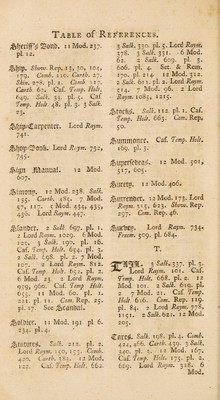 TABLE OF REFERENCES.
Sheriff's Bond. 11 Mod. 237.
pl. 12.
Ship. Show. Rep. 13, 30, 104,
179. Comb. 110. Carth. 27.
Skin. 278. pl. 1. Comb. 117.
Carth. 62. Caf. Temp. Holt.
640. Salk. 33. pl. 5. Caf.
Temp. Holt. 48. pl. 3. Salk.
23.
Ship-Carpenter. Lord Raym.
741.
Shop-Book. Lord Raym. 732,
745.
Sign Manual. 12 Mod.
607.
Simony. 12 Mod. 238. Salk.
135. Carth. 485. 7 Mod.
37, 117. 2 Mod. 434, 435,
436. Lord Raym. 447.
Slander. 2 Salk. 697. pl. 1.
2 Lord Raym. 1029. 6 Mod.
125. 3 Salk. 190. pl. 16.
Caf. Temp. Holt. 654. pl. 5.
2 Salk. 698. pl. 2. 7 Mod.
107. 2 Lord Raym. 812.
Caf. Temp. Holt. 652. pl. 2.
6 Mod. 23. 2 Lord Raym.
959, 960. Caf. Temp. Holt.
655. 11 Mod. 60. pl. 1.
221. pl. 11. Com. Rep. 25.
pl. 17. See Scandal.
Soldier. 11 Mod. 191. pl. 6.
234. pl. 4.
Statutes. Salk. 212. pl. 2.
Lord Raym. 150, 155. Comb.
420. Carth. 585. 12 Mod.
122. Caf. Temp. Holt. 662.
3 Salk. 330. pl. 5. Lord Raym.
378. 3 Salk. 331. 6 Mod.
62. 2 Salk. 609. pl. 3.
606. pl. 4. Set. & Rem.
170. pl. 214. 12 Mod. 512.
2 Salk. 611. pl. 2. Lord Raym.
214. 7 Mod. 96. 2 Lord
Raym. 1085, 1215.
Stocks. Salk. 112. pl. 1. Caf.
Temp. Holt. 663. Com. Rep.
50.
Summons. Caf. Temp. Holt.
169. pl. 3.
Supersedeas. 12 Mod. 501,
517, 605.
Surety. 12 Mod. 406.
Surrender. 12 Mod. 173. Lord
Raym. 315, 623. Show. Rep.
297. Com. Rep. 46.
Survey. Lord Raym. 734.
Freem. 509. pl. 684.
T.
3 Salk. 337. pl. 3.
Lord Raym. 101. Caf.
Temp. Holt. 668. pl. 2. 12
Mod 101. 2 Salk. 619. pl.
2. 7 Mod. 21. Caf. Temp.
Holt 616. Com. Rep. 119.
pl. 84. 2 Lord Raym. 978,
1121. 2 Salk. 621. 12 Mod.
205.
Tales. Salk. 198. pl. 4. Comb.
424, 466. Carth. 439. 3 Salk.
140. pl. 3. 12 Mod. 167.
Caf. Temp. Holt. 175. pl. 2.
669. Lord Raym. 318. 6
Mod.